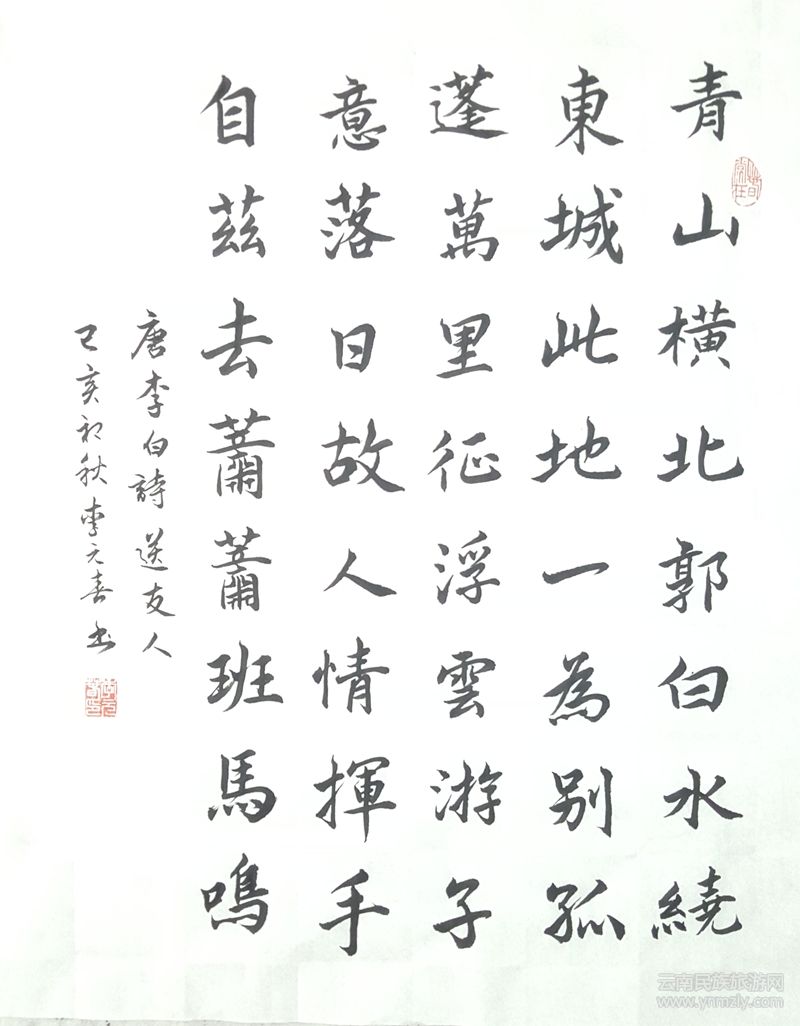 青山橫北郭白水繞
東城此地一為别孤
蓬萬里征浮雲游子
意落日故人情揮手
自茲去蕭蕭班馬鳴
唐李白詩送友人
己亥初秋李元喜书
云南民族旅游网
www.ynmzly.com